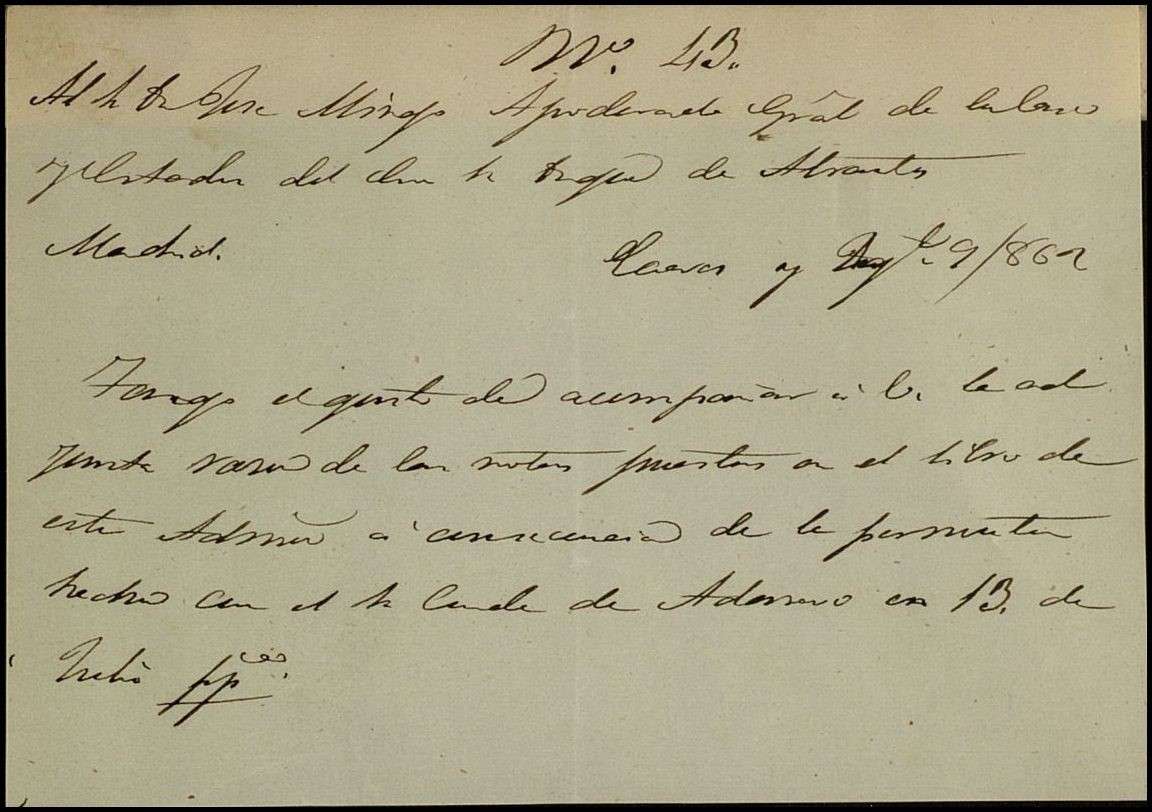 Nº. 43.
Al Sr Dn Jose Mingo Apoderado Gral de la Casa
y Estados del Sr Duque de Abrantes
Madrid.
Caceres y Agto. 9/862
Tengo el gusto de acompañar á V. la ad
junta razon de las notas puestas en el libro de
esta Admon á consecuencia de la permuta
hecha con el Sr Conde de Adanero en 13. de
Julio ppdo.